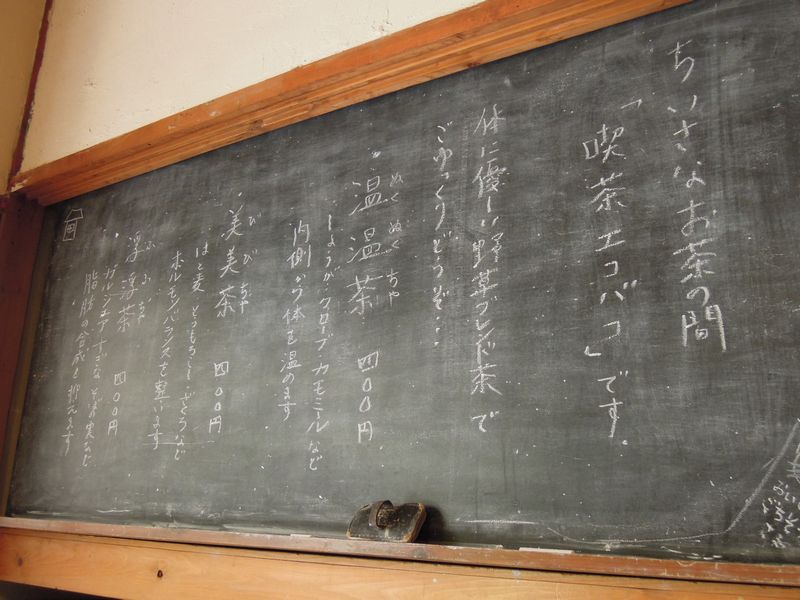 ちいさなお茶の間
「喫茶 エコバコ」です。
体に優しい野草ブレンド茶で
ごゆっくりどうぞ・・
ぬくぬくちゃ
・温温茶 四〇〇円
しょうが・クローブ・カモミールなど
内側から体を温めます
びびちゃ
・美美茶 四〇〇円
はと麦 とうもろこし ぶどうなど
ホルモンバランスを整います
ふふちゃ
・浮浮茶 四〇〇円
ガルシニア すぎな
脂肪の合成を抑えます